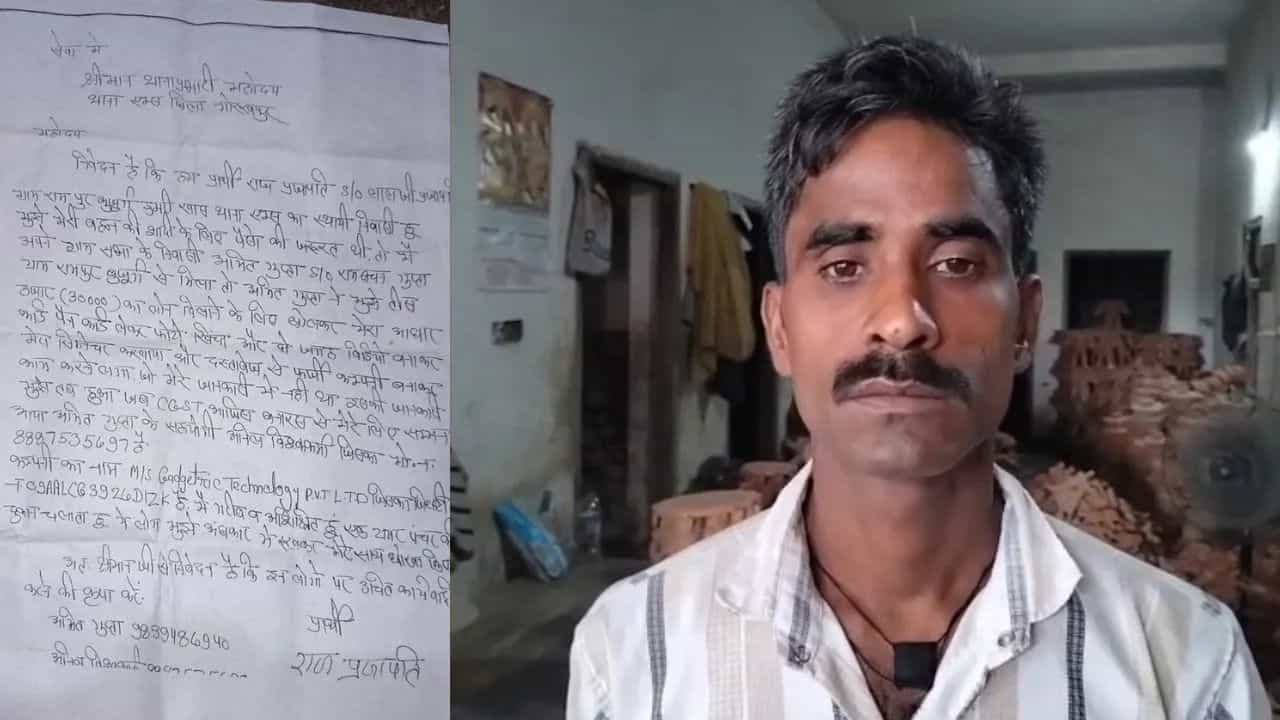 सेवा मे
श्रीमान थानाप्रभारी महोदय
थाना एम्स जिला गोरखपुर
महोदय
निवेदन है कि हम प्रार्थी राज प्रजापति S/O लाल जी प्रजापति
ग्राम राम पुर थाना एम्स का स्थायी निवासी हू
मुझे मेरी बहन की शादी के लिए पैसा की जरूरत थी, तो मै
अपने ग्राम सभा के निवासी अमित गुप्ता S/O गुप्ता
ग्राम रामपुर से मिला तो अमित गुप्ता ने मुझे तीस
हजार (30000) का लोन दिलाने के लिए बोलकर मेरा आधार
कार्ड पैन कार्ड लेकर फोटो खिंचा और दो जगह विडियो बनाकर
मेरा सिग्नेचर करवाया और दस्तावेज से फर्जी कम्पनी बनाकर
काम करने लगा, जो मेरे जानकारी मे नही था इसकी जानकारी
मुझे तब हुआ जब CGST आफिस से मेरे लिए सम्मन
आया अमित गुप्ता के सहयोगी विश्वकर्मा जिसका मो.न.
8887535697 है
कम्पनी का नाम M/S Gadgetric Technology P.V.T L.T.D जिसका
T09AALCG3926D1ZK है, मै गरीब व अशिक्षित हूं एक पंचर की
दुकान चलाता हू ये लोग मुझे मे रखकर मेरे साथ धोखा
अतः श्रीमान जी से निवेदन है कि इन लोगो पर उचित कार्यवाही
करने की कृपा करें.
अमित गुप्ता 9889486940
प्रार्थी
विश्वकर्मा
राज प्रजापति